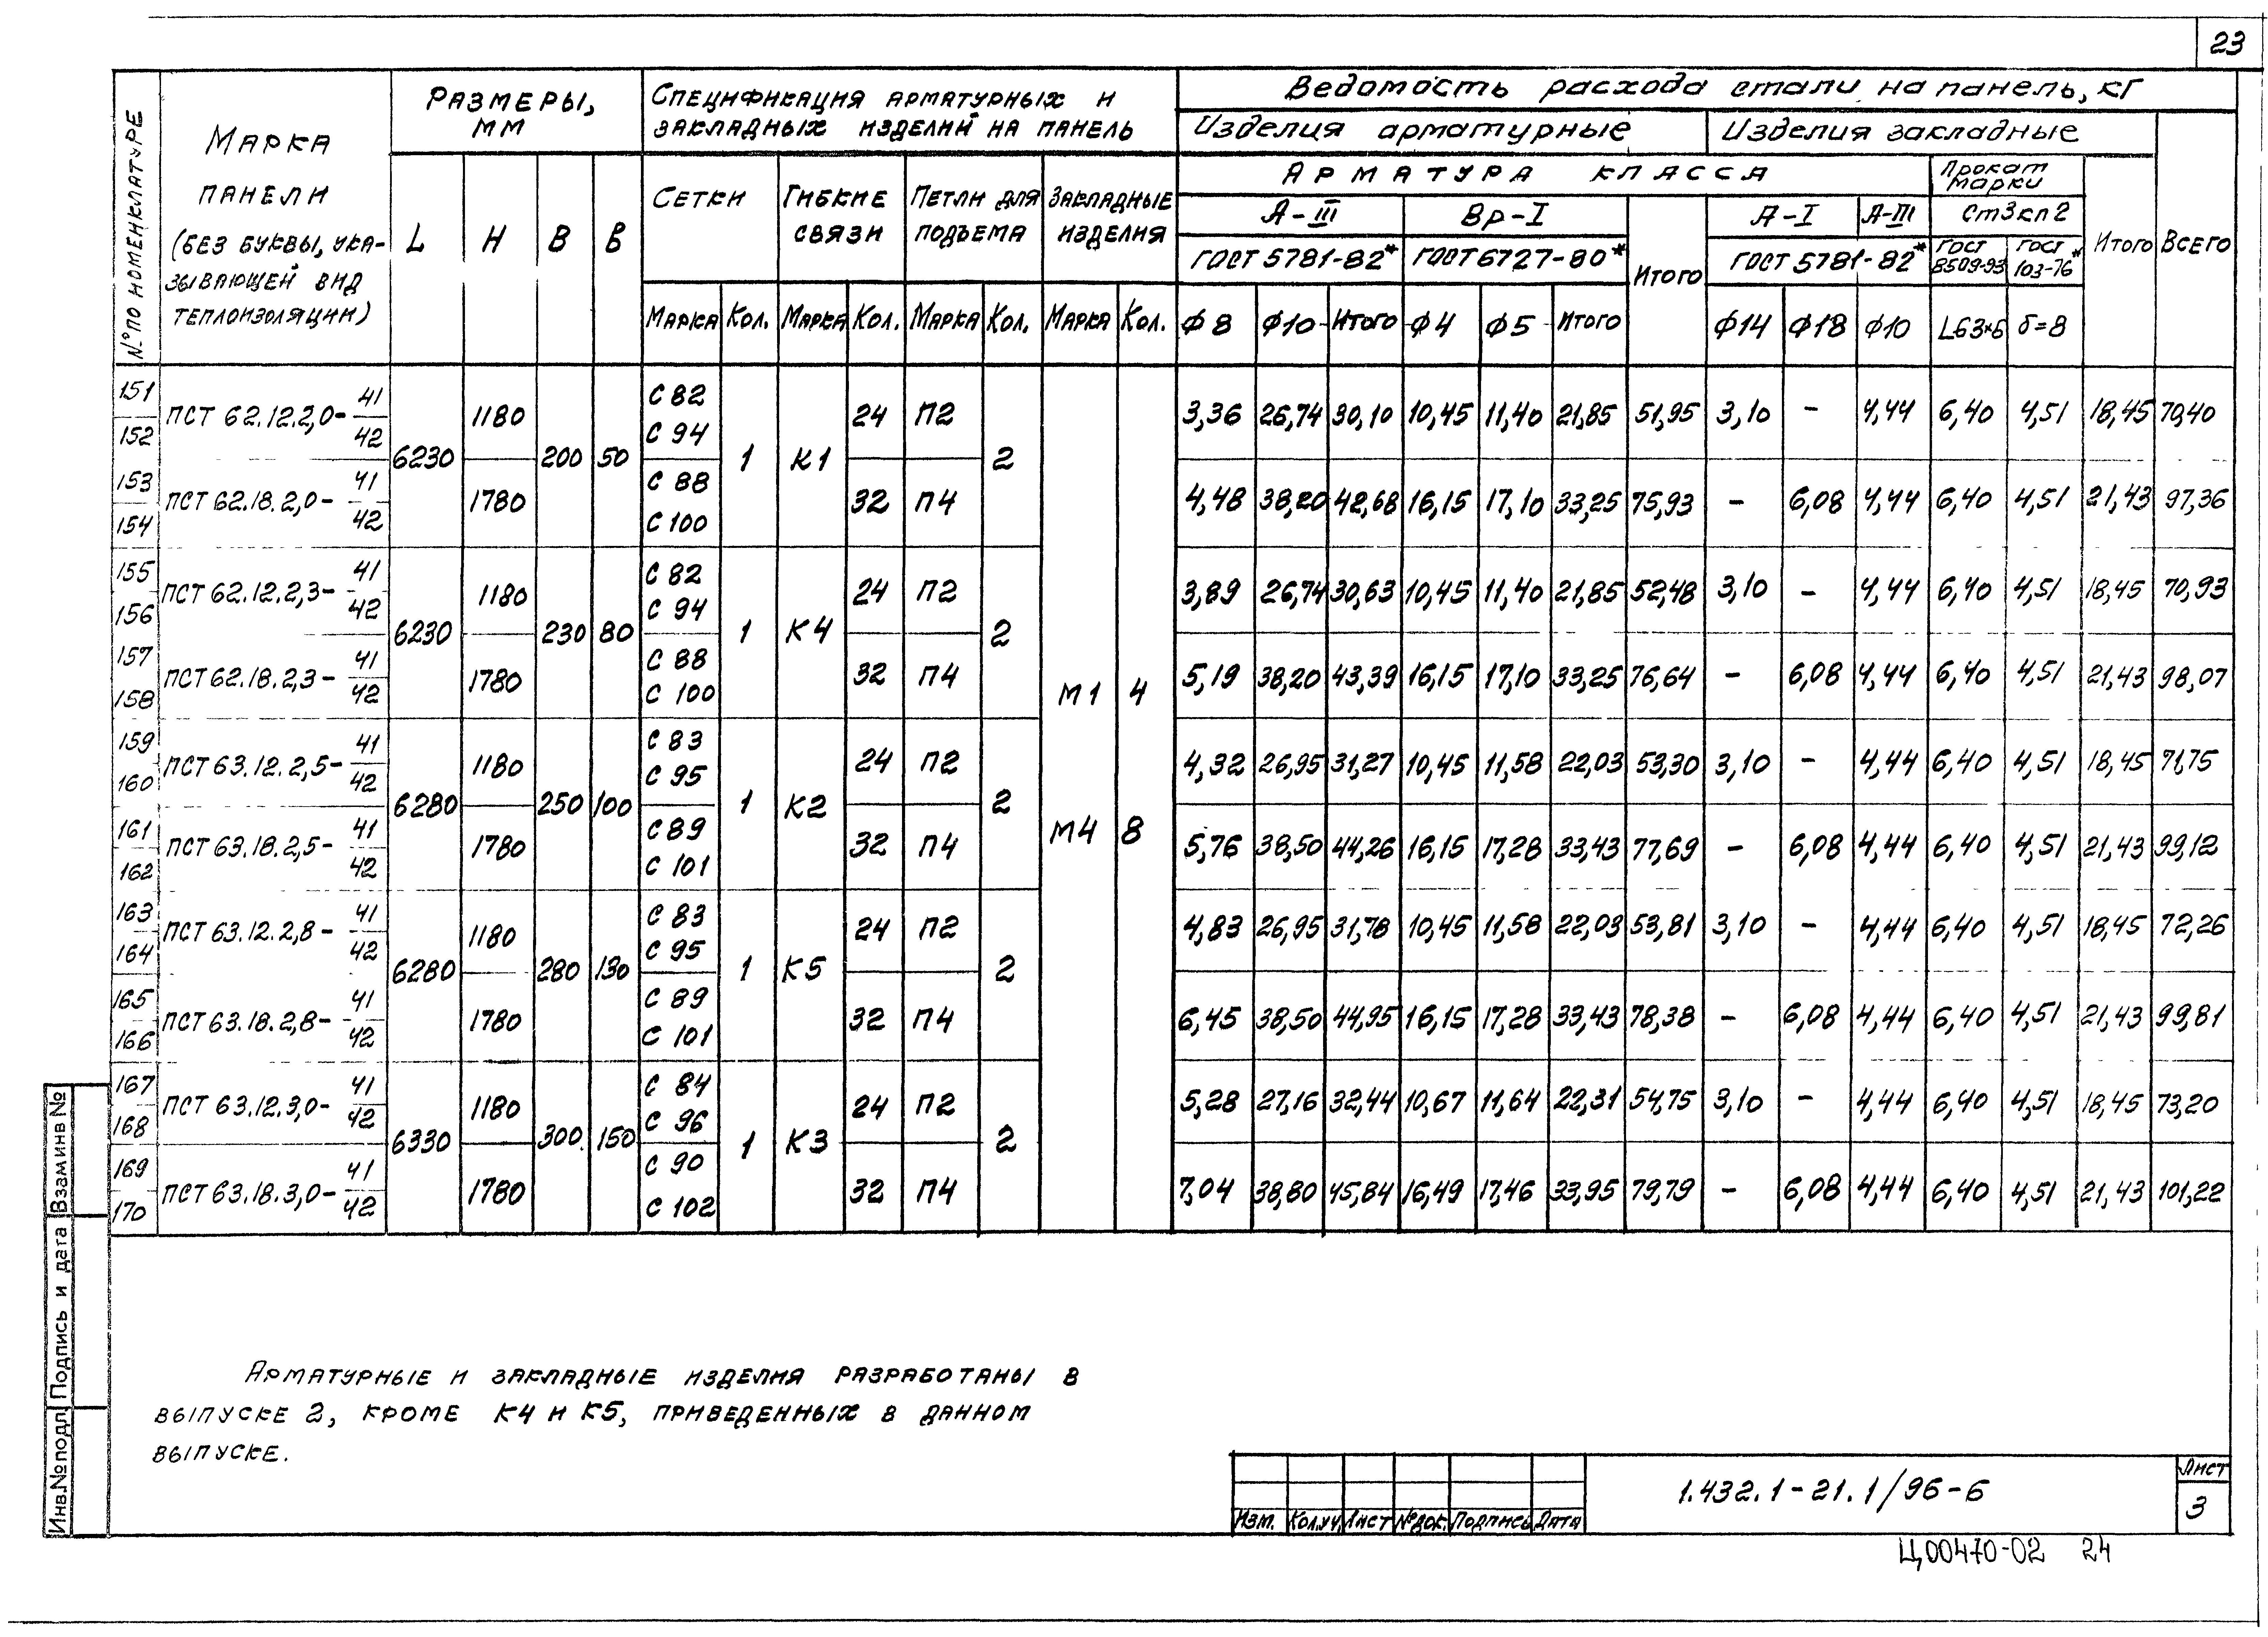 23
№ ПО НОМЕНКЛАТУРЕ
МАРКА
ПАНЕЛИ
(БЕЗ БУКВЫ, УКА-
ЗЫВАЮЩЕЙ ВИД
ТЕПЛОИЗОЛЯЦИИ)
РАЗМЕРЫ,
ММ
L H B в
СПЕЦИФИКАЦИЯ АРМАТУРНЫХ И
ЗАКЛАДНЫХ ИЗДЕЛИЙ НА ПАНЕЛЬ
СЕТКИ ГИБКИЕ СВЯЗИ ПЕТЛИ ДЛЯ ПОДЪЕМА ЗАКЛАДНЫЕ ИЗДЕЛИЯ
МАРКА КОЛ. МАРКА КОЛ. МАРКА КОЛ. МАРКА КОЛ.
Ведомость расхода стали на панель, кг
Изделия арматурные Изделия закладные
АРМАТУРА КЛАССА Прокат марки
А-III Вр-I А-I А-III Ст3кп2
ГОСТ 5781-82* ГОСТ 6727-80* Итого ГОСТ 5781-82* ГОСТ 8509-93 ГОСТ 103-76* Итого Всего
ф8 ф10 Итого ф4 ф5 Итого ф14 ф18 ф10 L63×6 δ=8
151 152 ПСТ 62.12.2,0- 41 42 6230 1180 200 50 С 82 С 94 1 К1 24 П2 2 3,36 26,74 30,10 10,45 11,40 21,85 51,95 3,10 - 4,44 6,40 4,51 18,45 70,40
153 154 ПСТ 62.18.2,0- 41 42 1780 С 88 С 100 32 П4 4,48 38,20 42,68 16,15 17,10 33,25 75,93 - 6,08 4,44 6,40 4,51 21,43 97,36
155 156 ПСТ 62.12.2,3- 41 42 6230 1180 230 80 С 82 С 94 1 К4 24 П2 2 3,89 26,74 30,63 10,45 11,40 21,85 52,48 3,10 - 4,44 6,40 4,51 18,45 70,93
157 158 ПСТ 62.18.2,3- 41 42 1780 С 88 С 100 32 П4 М1 4 5,19 38,20 43,39 16,15 17,10 33,25 76,64 - 6,08 4,44 6,40 4,51 21,43 98,07
159 160 ПСТ 63.12.2,5- 41 42 6280 1180 250 100 С 83 С 95 1 К2 24 П2 2 4,32 26,95 31,27 10,45 11,58 22,03 53,30 3,10 - 4,44 6,40 4,51 18,45 71,75
161 162 ПСТ 63.18.2,5- 41 42 1780 С 89 С 101 32 П4 М4 8 5,76 38,50 44,26 16,15 17,28 33,43 77,69 - 6,08 4,44 6,40 4,51 21,43 99,12
163 164 ПСТ 63.12.2,8- 41 42 6280 1180 280 130 С 83 С 95 1 К5 24 П2 2 4,83 26,95 31,78 10,45 11,58 22,03 53,81 3,10 - 4,44 6,40 4,51 18,45 72,26
165 166 ПСТ 63.18.2,8- 41 42 1780 С 89 С 101 32 П4 6,45 38,50 44,95 16,15 17,28 33,43 78,38 - 6,08 4,44 6,40 4,51 21,43 99,81
167 168 ПСТ 63.12.3,0- 41 42 6330 1180 300 150 С 84 С 96 1 К3 24 П2 2 5,28 27,16 32,44 10,67 11,64 22,31 54,75 3,10 - 4,44 6,40 4,51 18,45 73,20
169 170 ПСТ 63.18.3,0- 41 42 1780 С 90 С 102 32 П4 7,04 38,80 45,84 16,49 17,46 33,95 79,79 - 6,08 4,44 6,40 4,51 21,43 101,22
АРМАТУРНЫЕ И ЗАКЛАДНЫЕ ИЗДЕЛИЯ РАЗРАБОТАНЫ В
ВЫПУСКЕ 2, КРОМЕ К4 И К5, ПРИВЕДЕННЫХ В ДАННОМ
ВЫПУСКЕ.
Инв.№подл. Подпись и дата Взам.инв №
Изм. Кол.уч. Лист №док. Подпись Дата
1.432.1-21.1/96-6
Лист
3
Ц00470-02 24